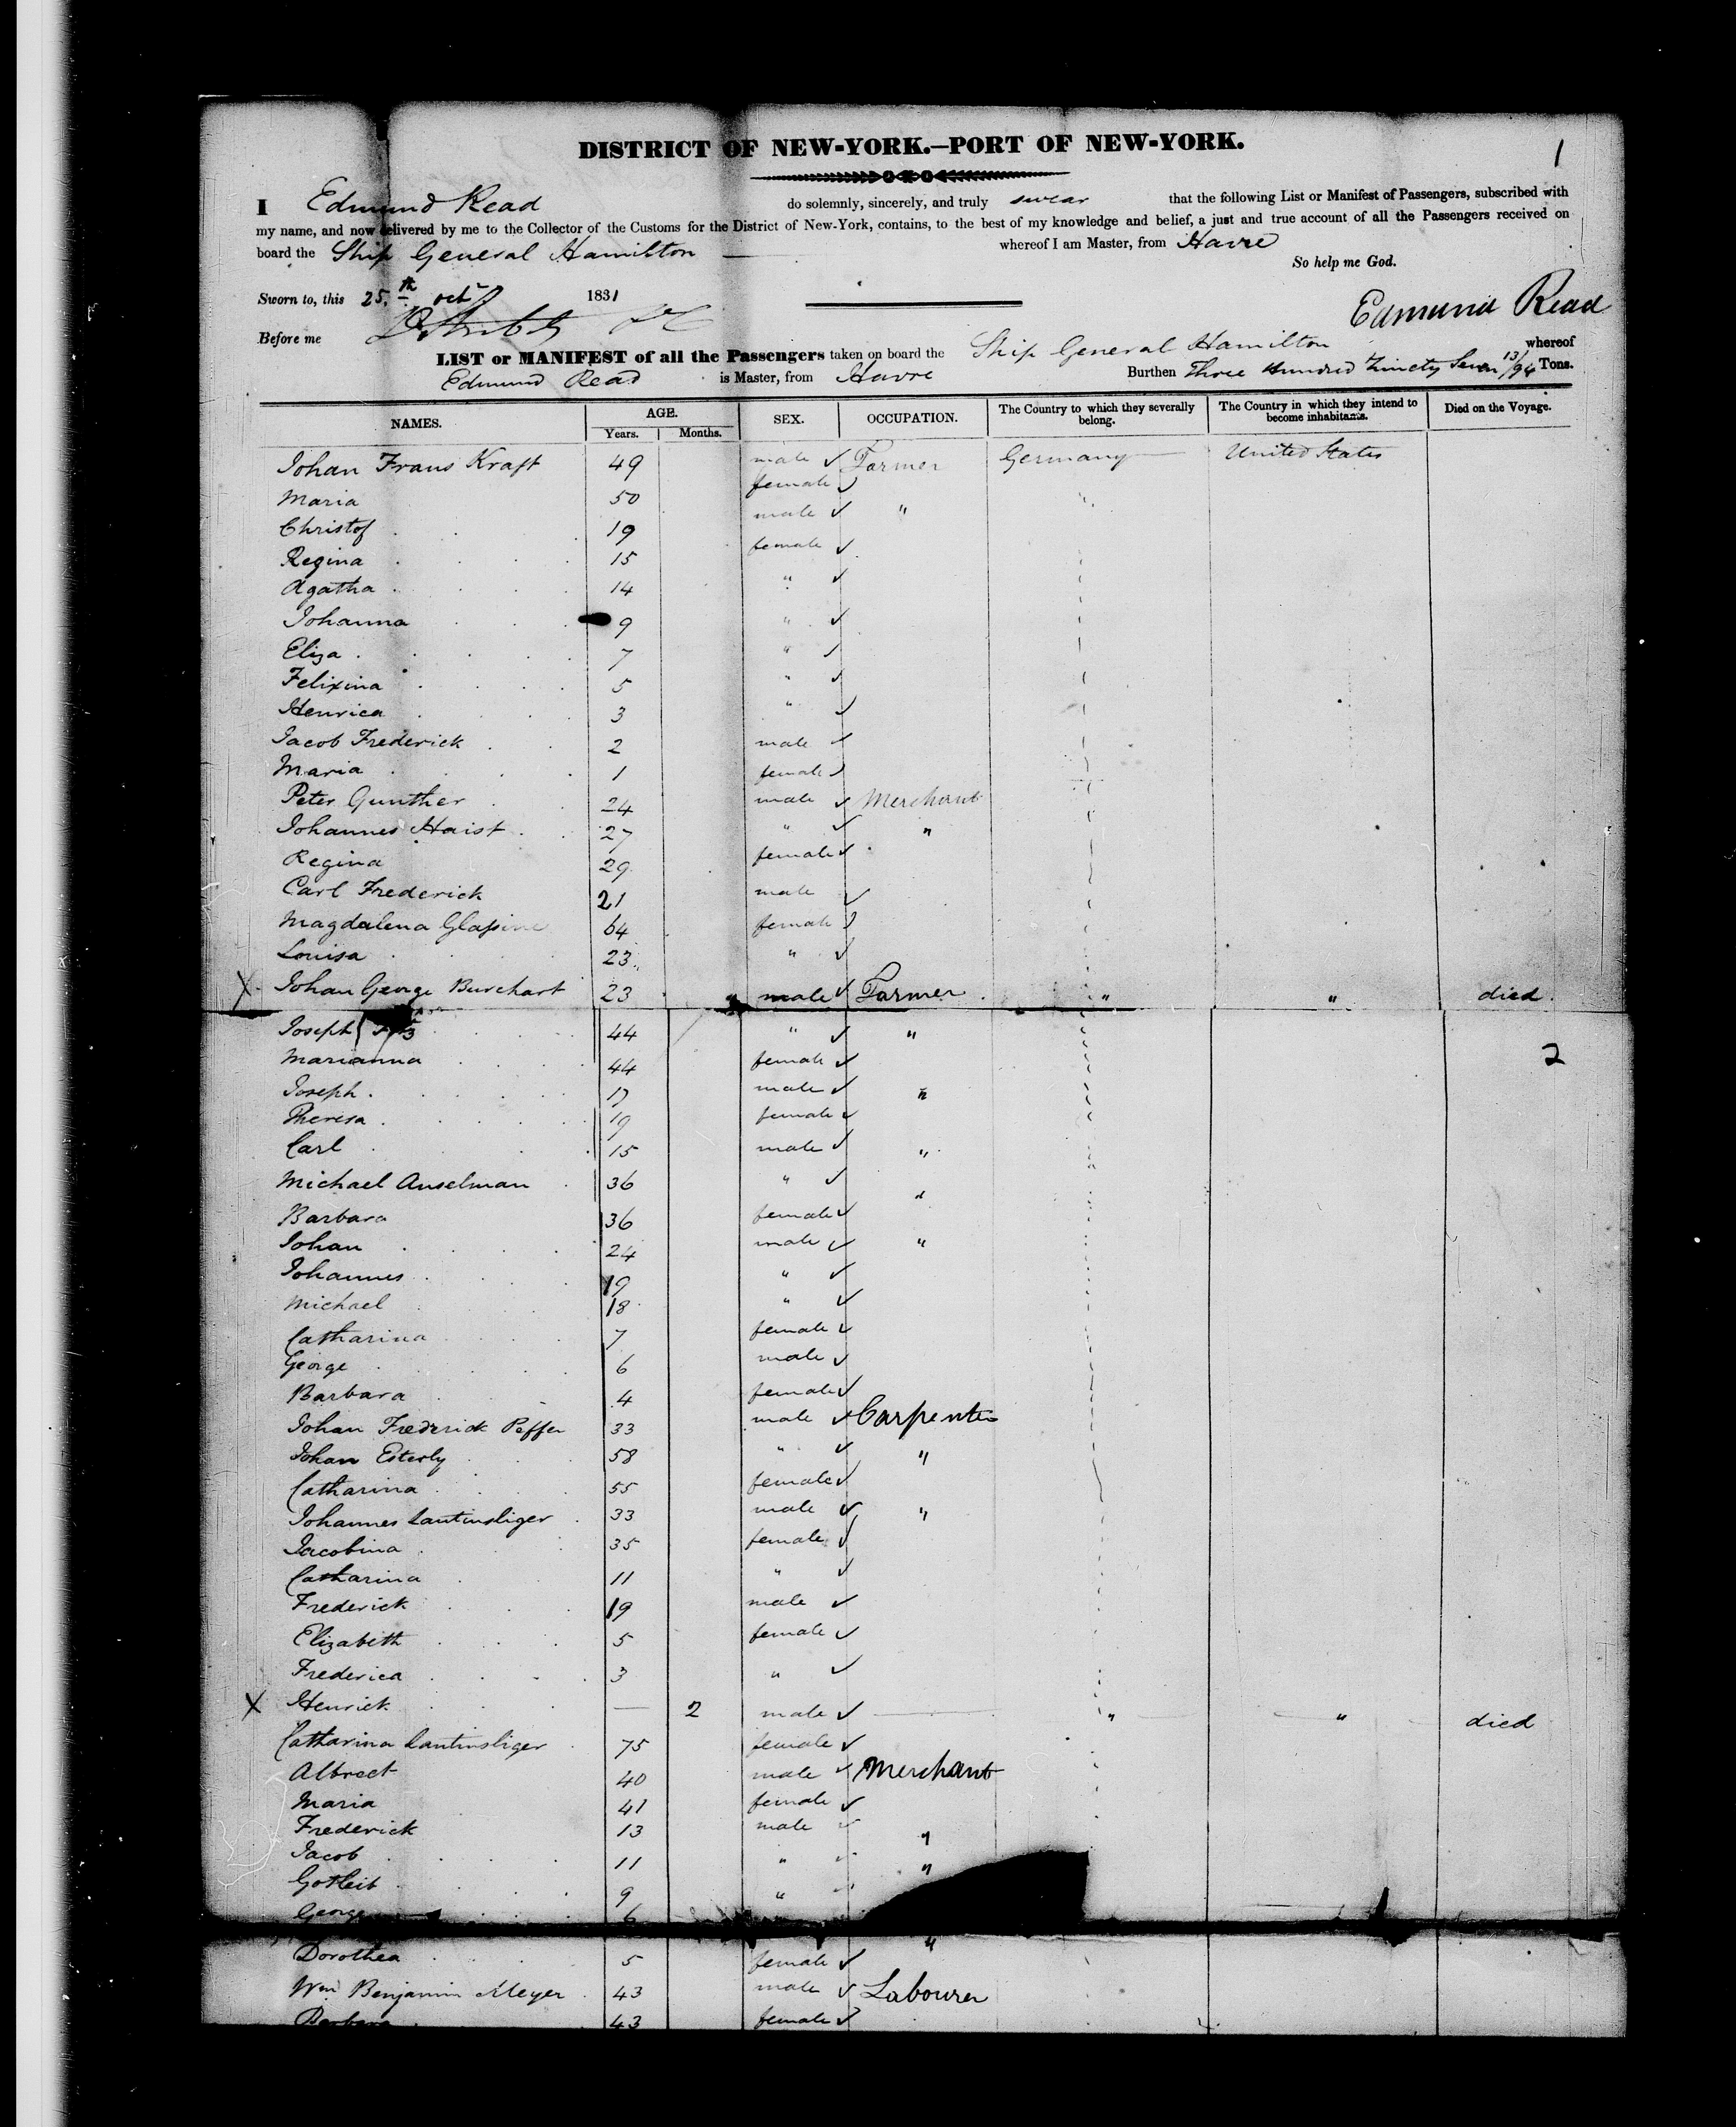 DISTRICT OF NEW-YORK.—PORT OF NEW-YORK.
1
I Edmund Read do solemnly, sincerely, and truly swear that the following List or Manifest of Passengers, subscribed with
my name, and now delivered by me to the Collector of the Customs for the District of New-York, contains, to the best of my knowledge and belief, a just and true account of all the Passengers received on
board the Ship General Hamilton whereof I am Master, from Havre
So help me God.
Sworn to, this 25.th oct 1831
Edmund Read
Before me
LIST or MANIFEST of all the Passengers taken on board the Ship General Hamilton whereof
Edmund Read is Master, from Havre Burthen Three Hundred Ninety Seven 13/94 Tons.
NAMES. AGE. Years. Months. SEX. OCCUPATION. The Country to which they severally belong. The Country in which they intend to become inhabitants. Died on the Voyage.
Johan Frans Kraft 49 male Farmer Germany United States
Maria 50 female
Christof 19 male "
Regina 15 female
Agatha 14 "
Johanna 9 "
Eliza 7 "
Felixina 5 "
Henrica 3 "
Jacob Frederick 2 male
Maria 1 female
Peter Gunther 24 male Merchant
Johannes Haist 27 " "
Regina 29 female
Carl Frederick 21 male
Magdalena 64 female
Louisa 23 "
X Johan George Burchart 23 " male Farmer " " died
Joseph 44 " "
2
Marianna 44 female
Joseph 17 male "
Theresa 19 female
Carl 15 male "
Michael Anselman 36 " "
Barbara 36 female
Johan 24 male "
Johannes 19 "
Michael 18 "
Catharina 7 female
George 6 male
Barbara 4 female
Johan Frederick Peffer 33 male Carpenter
Johan Esterly 58 " "
Catharina 55 female
Johannes Lautensliger 33 male "
Jacobina 35 female
Catharina 11 "
Frederick 19 male
Elizabeth 5 female
Frederica 3 "
X Henrick — 2 male " " died
Catharina Lautensliger 75 female
Albrect 40 male Merchant
Maria 41 female
Frederick 13 male "
Jacob 11 " "
Gotleib 9 "
George 6
Dorothea 5 female "
Wm Benjamin Meyer 43 male Labourer
Barbara 43 female